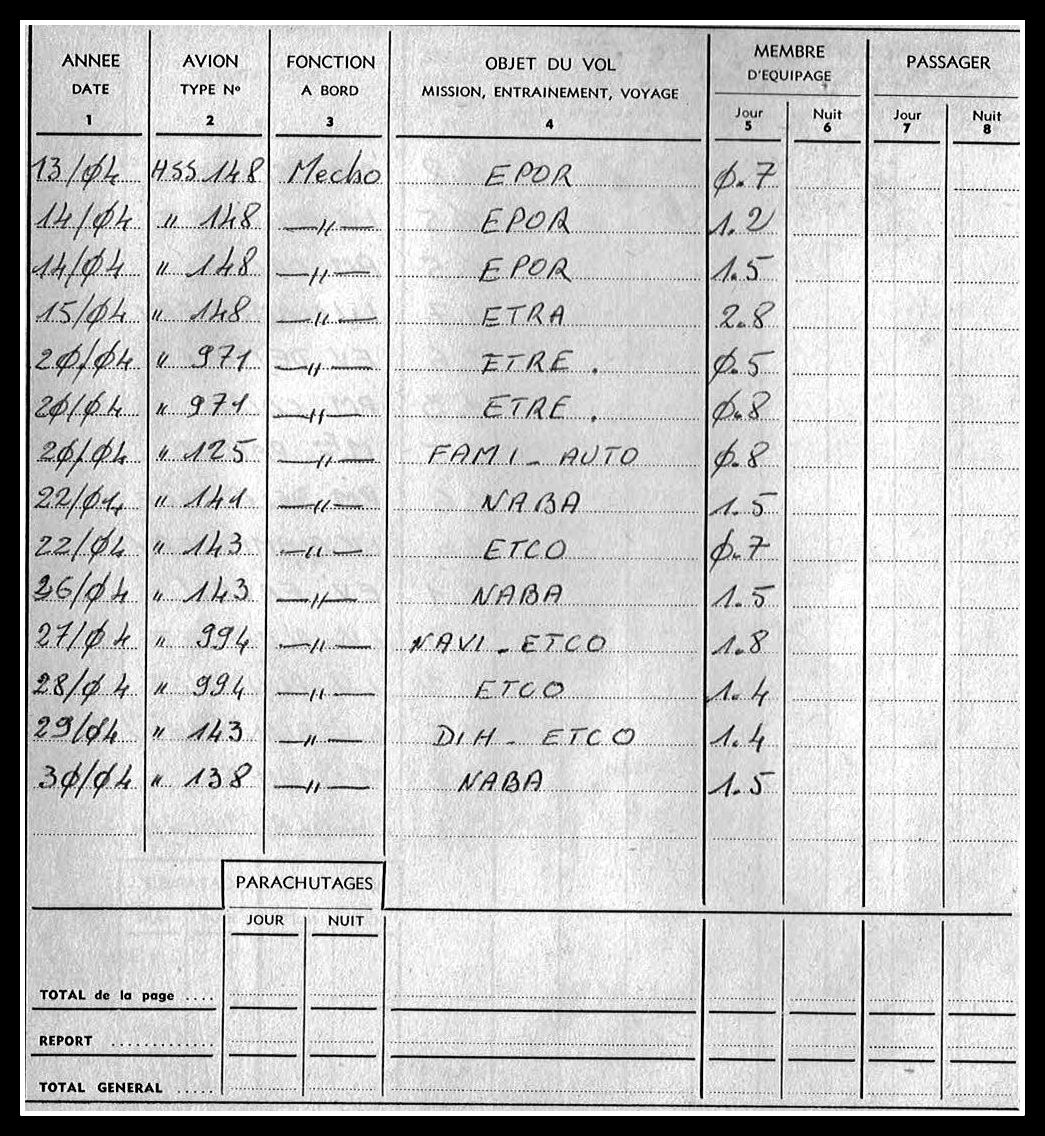 ANNEE AVION FONCTION OBJET DU VOL MEMBRE PASSAGER
DATE TYPE N° A BORD MISSION, ENTRAINEMENT, VOYAGE D'EQUIPAGE
Jour Nuit Jour Nuit
1 2 3 4 5 6 7 8
13/04 HSS 148 Mecho EPOR 0.7
14/04 " 148 —"— EPOR 1.2
14/04 " 148 —"— EPOR 1.5
15/04 " 148 —"— ETRA 2.8
20/04 " 971 —"— ETRE. 0.5
20/04 " 971 —"— ETRE. 0.8
20/04 " 125 —"— FAMI_AUTO 0.8
22/04 " 141 —"— NABA 1.5
22/04 " 143 —"— ETCO 0.7
26/04 " 143 —"— NABA 1.5
27/04 " 994 —"— NAVI_ETCO 1.8
28/04 " 994 —"— ETCO 1.4
29/04 " 143 —"— DIH_ETCO 1.4
30/04 " 138 —"— NABA 1.5
PARACHUTAGES
JOUR NUIT
TOTAL de la page ....
REPORT ............
TOTAL GENERAL .....